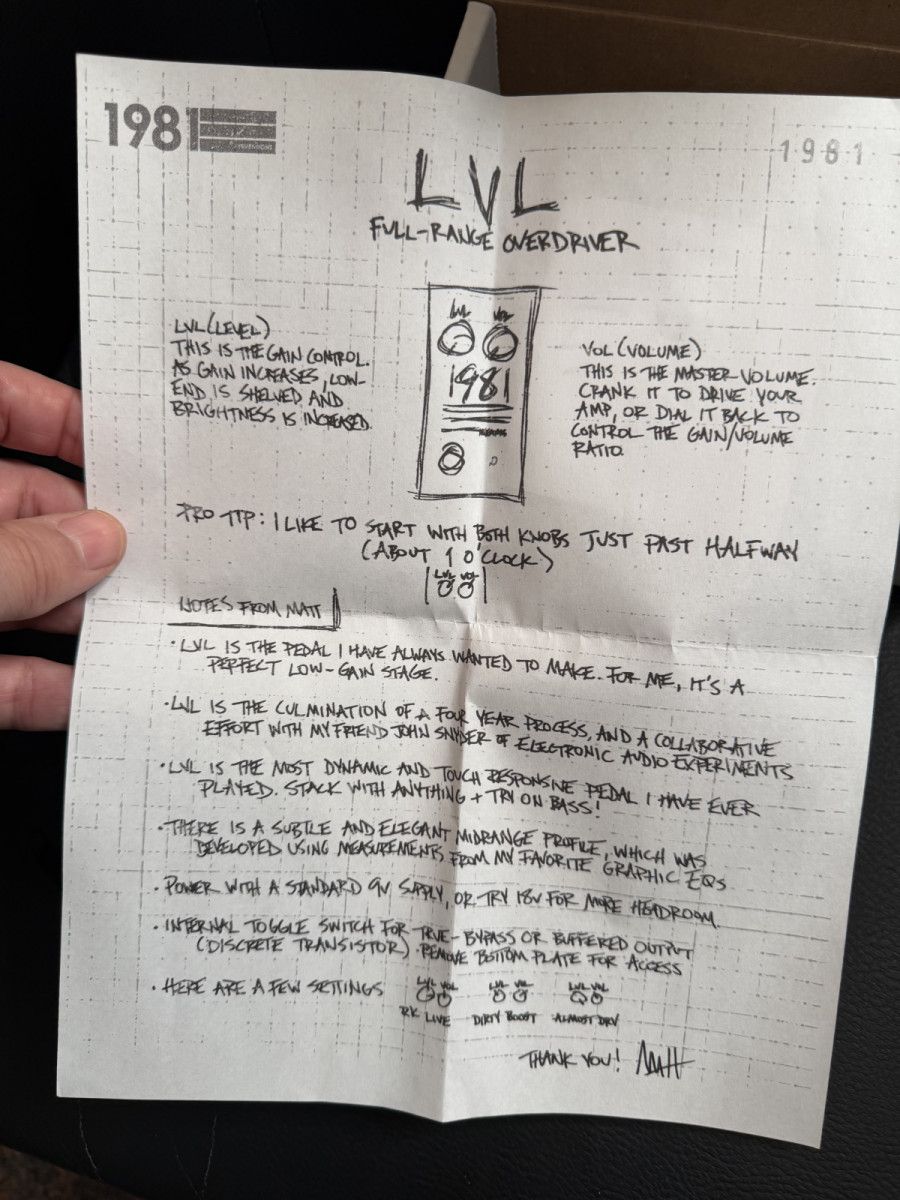 1981
INVENTIONS
1981
LVL
FULL-RANGE OVERDRIVER
LVL (LEVEL)
THIS IS THE GAIN CONTROL.
AS GAIN INCREASES, LOW-
END IS SHELVED AND
BRIGHTNESS IS INCREASED.
LVL VOL
1981
VOL (VOLUME)
THIS IS THE MASTER VOLUME.
CRANK IT TO DRIVE YOUR
AMP, OR DIAL IT BACK TO
CONTROL THE GAIN/VOLUME
RATIO.
PRO TIP: I LIKE TO START WITH BOTH KNOBS JUST PAST HALFWAY
(ABOUT 1 O'CLOCK)
LVL VOL
NOTES FROM MATT
• LVL IS THE PEDAL I HAVE ALWAYS WANTED TO MAKE. FOR ME, IT'S A
PERFECT LOW-GAIN STAGE.
• LVL IS THE CULMINATION OF A FOUR YEAR PROCESS, AND A COLLABORATIVE
EFFORT WITH MY FRIEND JOHN SNYDER OF ELECTRONIC AUDIO EXPERIMENTS
• LVL IS THE MOST DYNAMIC AND TOUCH RESPONSIVE PEDAL I HAVE EVER
PLAYED. STACK WITH ANYTHING + TRY ON BASS!
• THERE IS A SUBTLE AND ELEGANT MIDRANGE PROFILE, WHICH WAS
DEVELOPED USING MEASUREMENTS FROM MY FAVORITE GRAPHIC EQS
• POWER WITH A STANDARD 9V SUPPLY, OR TRY 18V FOR MORE HEADROOM.
• INTERNAL TOGGLE SWITCH FOR TRUE-BYPASS OR BUFFERED OUTPUT
(DISCRETE TRANSISTOR). REMOVE BOTTOM PLATE FOR ACCESS
• HERE ARE A FEW SETTINGS
LVL VOL LVL VOL LVL VOL
RK LIVE DIRTY BOOST ALMOST DRV
THANK YOU! MATT